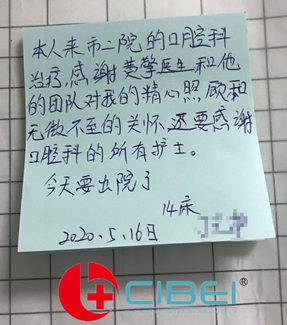 本人来市二院的口腔科
治疗,感谢黄擎医生和他
的团队对我的精心照顾和
无微不至的关怀还要感谢
口腔科的所有护士。
今天要出院了
14床
2020.5.16日
CIBEI®